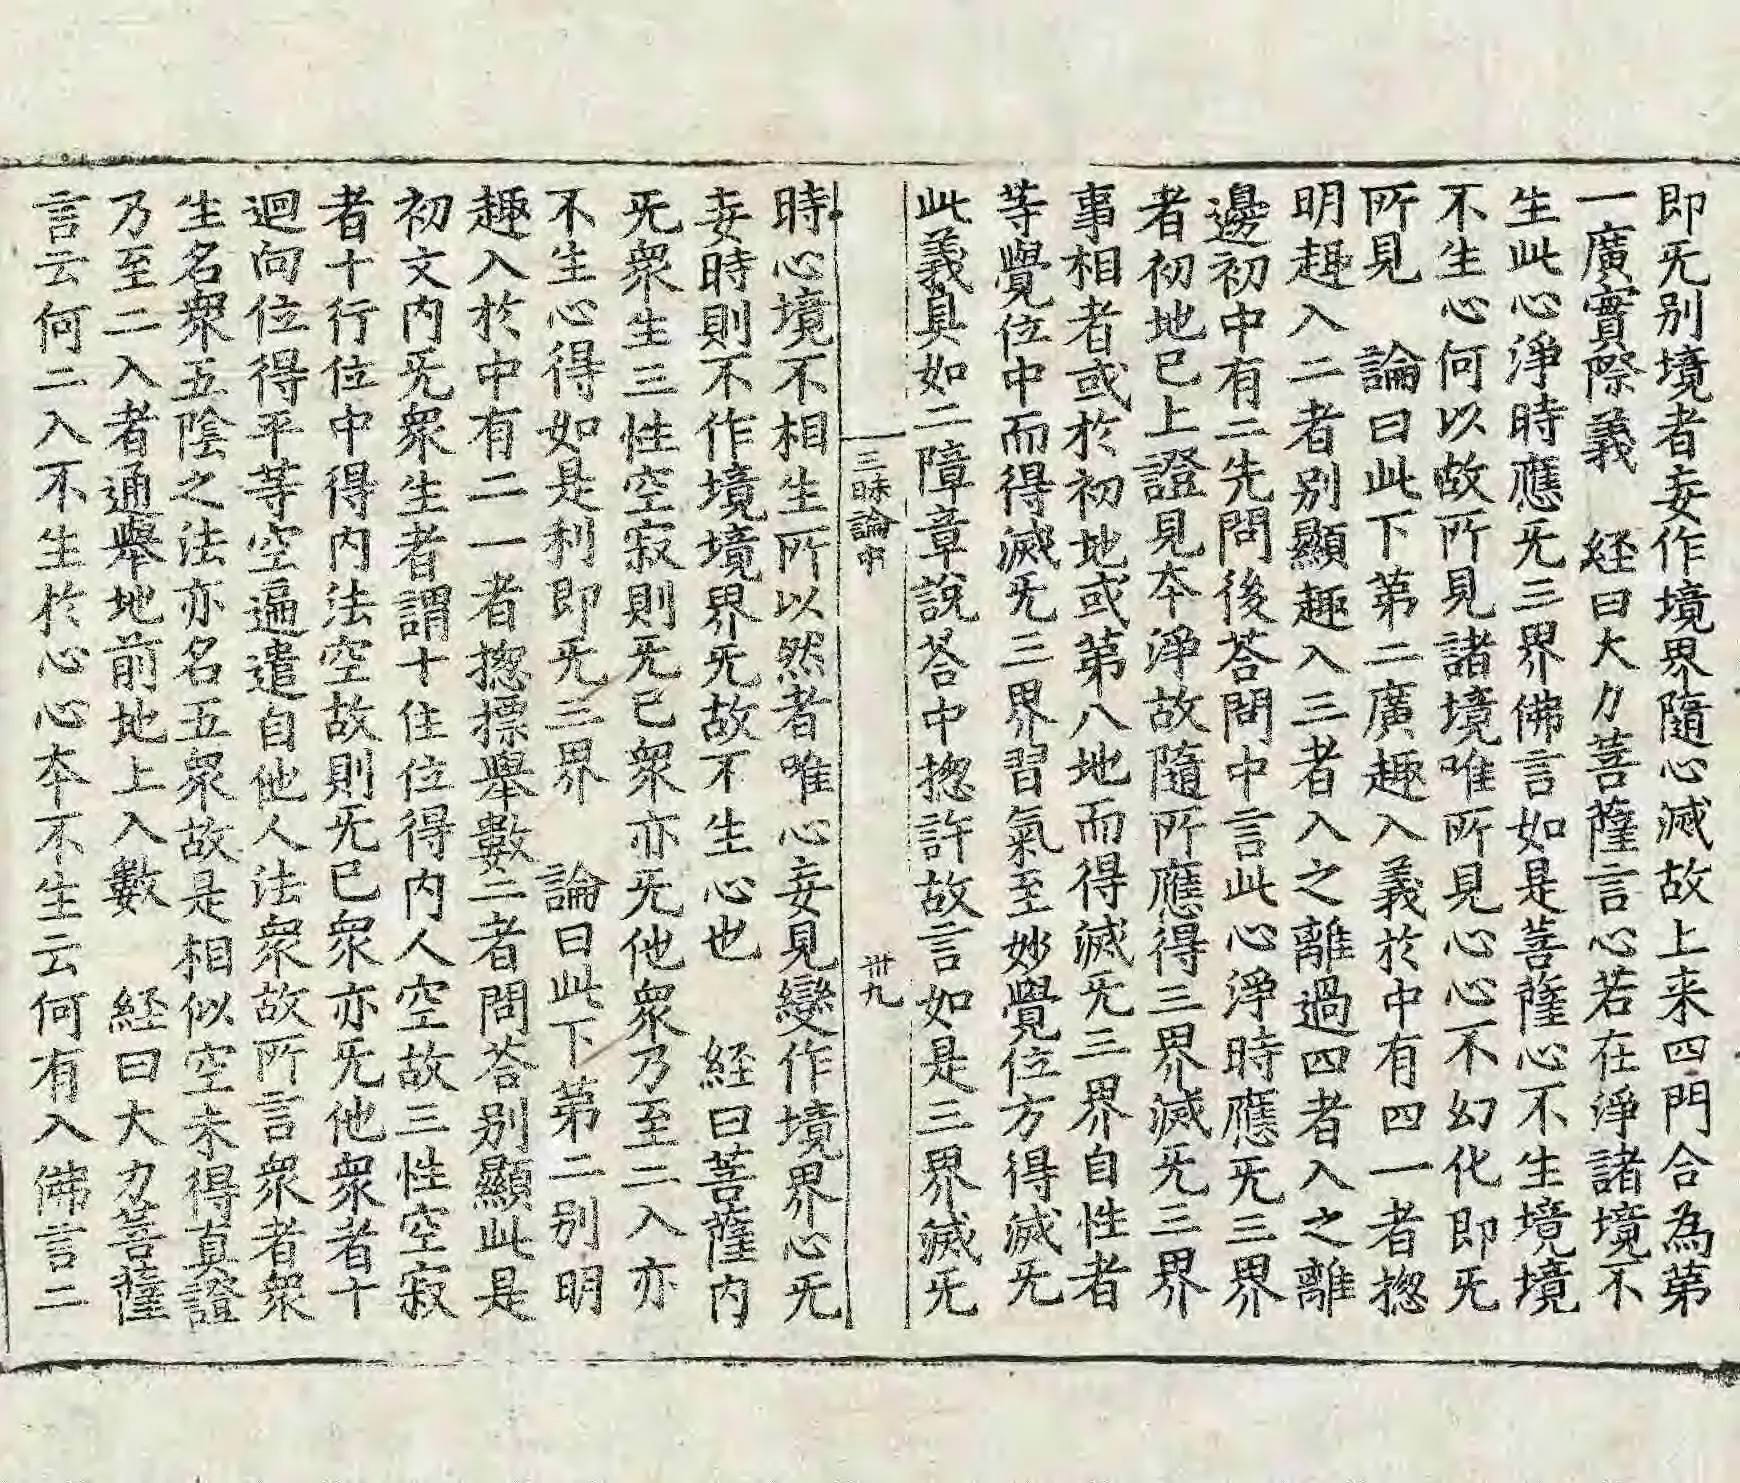 即旡别境者妄作境界隨心滅故上来四門合為第
一廣實際義　経曰大力菩薩言心若在淨諸境不
生此心淨時應旡三界佛言如是菩薩心不生境境
不生心何以故所見諸境唯所見心心不幻化即旡
所見　論曰此下第二廣趣入義於中有四一者摠
明趣入二者别顯趣入三者入之離過四者入之離
邊初中有二先問後荅問中言此心淨時應旡三界
者初地已上證見夲淨故隨所應得三界滅旡三界
事相者或於初地或第八地而得滅旡三界自性者
等覺位中而得滅旡三界習氣至妙覺位方得滅旡
此義具如二障章說荅中摠許故言如是三界滅旡
三昧論中　卅九
時心境不相生所以然者唯心妄見變作境界心旡
妄時則不作境境界旡故不生心也　経曰菩薩内
旡衆生三性空寂則旡已衆亦旡他衆乃至二入亦
不生心得如是利即旡三界　論曰此下第二别明
趣入於中有二一者摠摽舉數二者問荅别顯此是
初文内旡衆生者謂十住位得内人空故三性空寂
者十行位中得内法空故則旡已衆亦旡他衆者十
迴向位得平等空遍遣自他人法衆故所言衆者衆
生名衆五陰之法亦名五衆故是相似空未得真證
乃至二入者通舉地前地上入數　経曰大力菩薩
言云何二入不生於心心夲不生云何有入佛言二